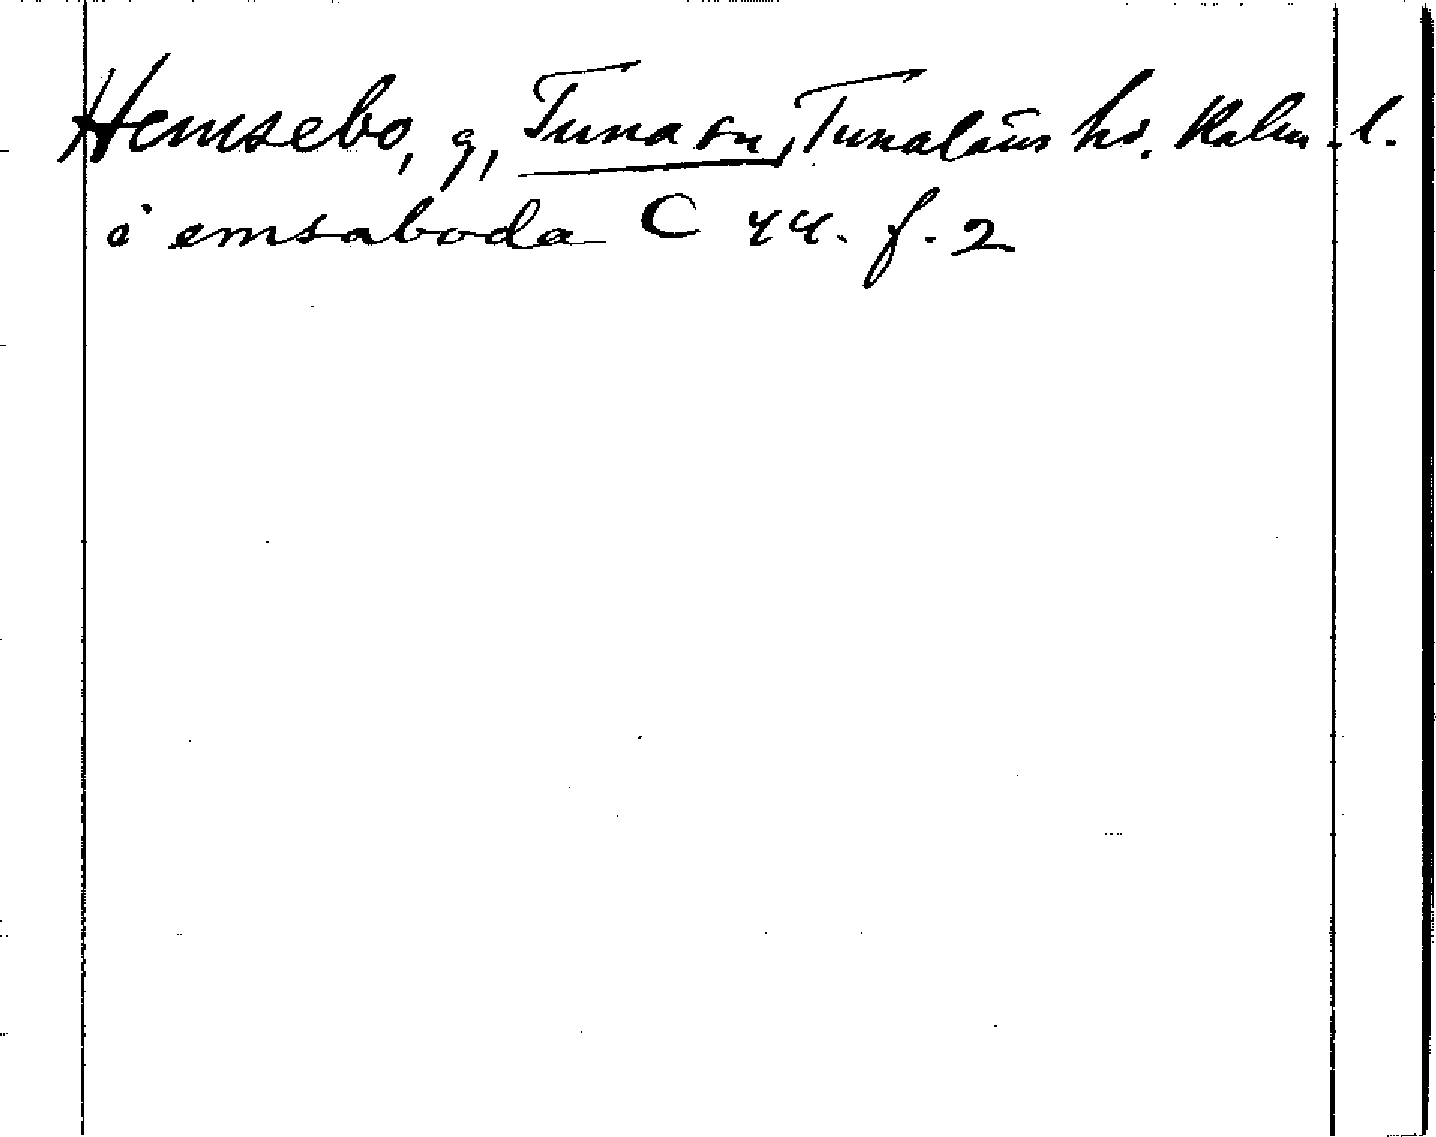 Hemsebo, g, Tuna sn, Tunaläns hd. Kalm. l.
i emsaboda C 44. f. 2